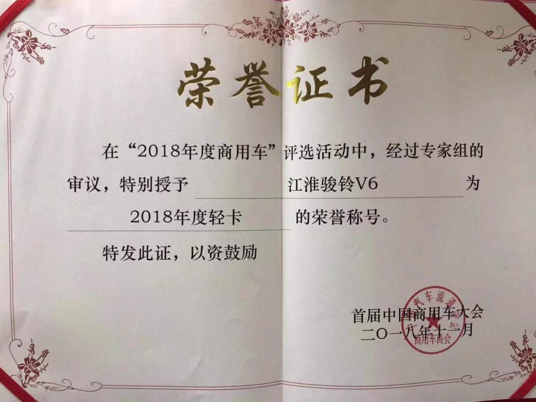 荣誉证书
在“2018年度商用车”评选活动中，经过专家组的
审议，特别授予 江淮骏铃V6 为
2018年度轻卡 的荣誉称号。
特发此证，以资鼓励
首届中国商用车大会
二〇一八年十一月
商用车商会